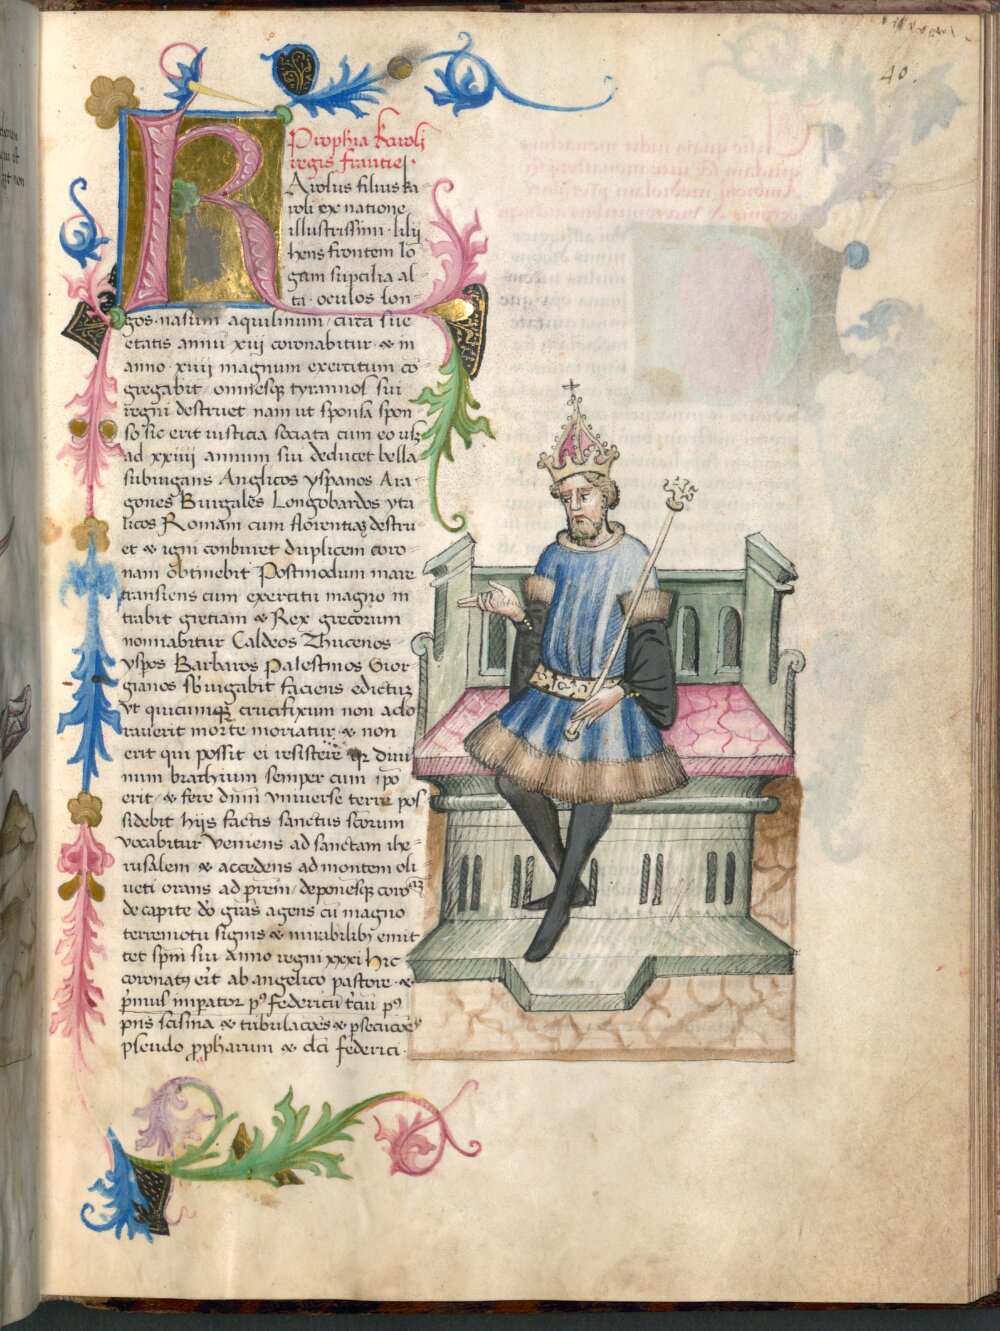 40.
Prophia karoli
regis francie.
R
Arolus filius ka-
roli ex natione
illustrissimi lilij
hens frontem lō
gam supcilia al-
ta. oculos lon-
gos. nasum aquilinum / circa sue
etatis annū xiij coronabitur. & in
anno xiiij magnum exercitum cō
gregabit / omnesqꝫ tyrannos sui
regni destruet nam ut sponsa spon-
so sic erit iusticia sociata cum eo usqꝫ
ad xxiiij annum sui deducet bella
subiugans Anglicos yspanos Ara-
gones Burgales Longobardos yta-
licos Romam cum florentia destru-
et & igni conburet duplicem coro-
nam obtinebit Postmodum mare
transiens cum exercitu magno in
trabit gretiam & Rex grecorum
nominabitur Caldeos Thucenos
yspos Barbaros Palestinos Gior-
gianos sbiugabit faciens edictuꝫ
Vt quicumqꝫ crucifixum non ado
rauerit morte moriatur & non
erit qui possit ei resistere qꝛ diui
num brachium semper cum ipo
erit / & fere dnm vniuerse terre pos
sidebit hijs factis sanctus scorum
vocabitur veniens ad sanctam ihe-
rusalem & accedens ad montem oli
ueti orans ad prem / deponesqꝫ coronaꝫ
de capite do gras agens cu magno
terremotu signis & mirabilibꝫ emit
tet spm sui anno regni xxxi hic
coronatꝰ erit ab angelico pastore. &
pmus impator pꝰ federicu tciu pꝰ
pns scisma & tribulacões & psecucoes
pseudo ppharum & dci federici.